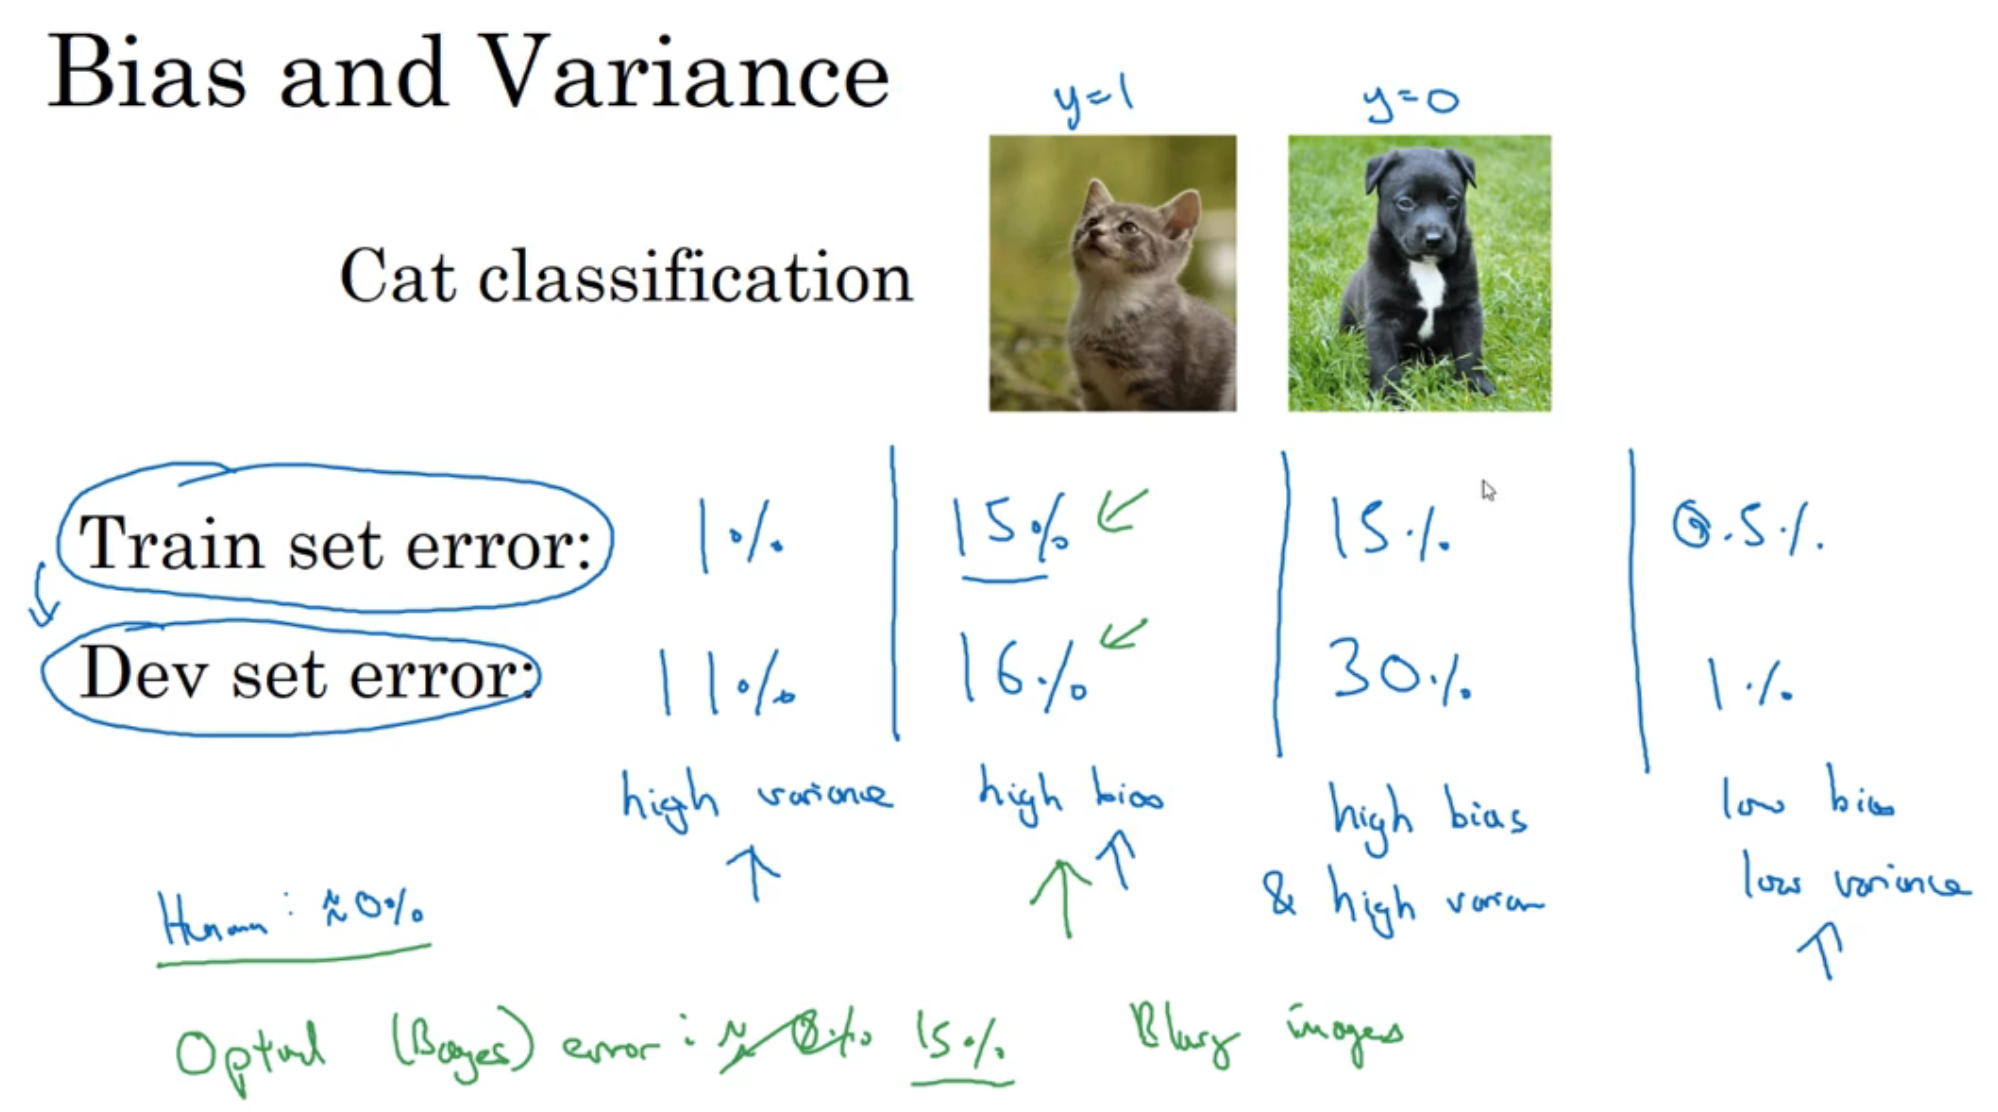 Bias and Variance
y=1 y=0
Cat classification
Train set error: 1% 15% 15% 0.5%
Dev set error: 11% 16% 30% 1%
high variance high bias high bias low bias
& high varian low variance
Human: ≈0%
Optiml (Bayes) error: ≈ 0% 15% Blurry images